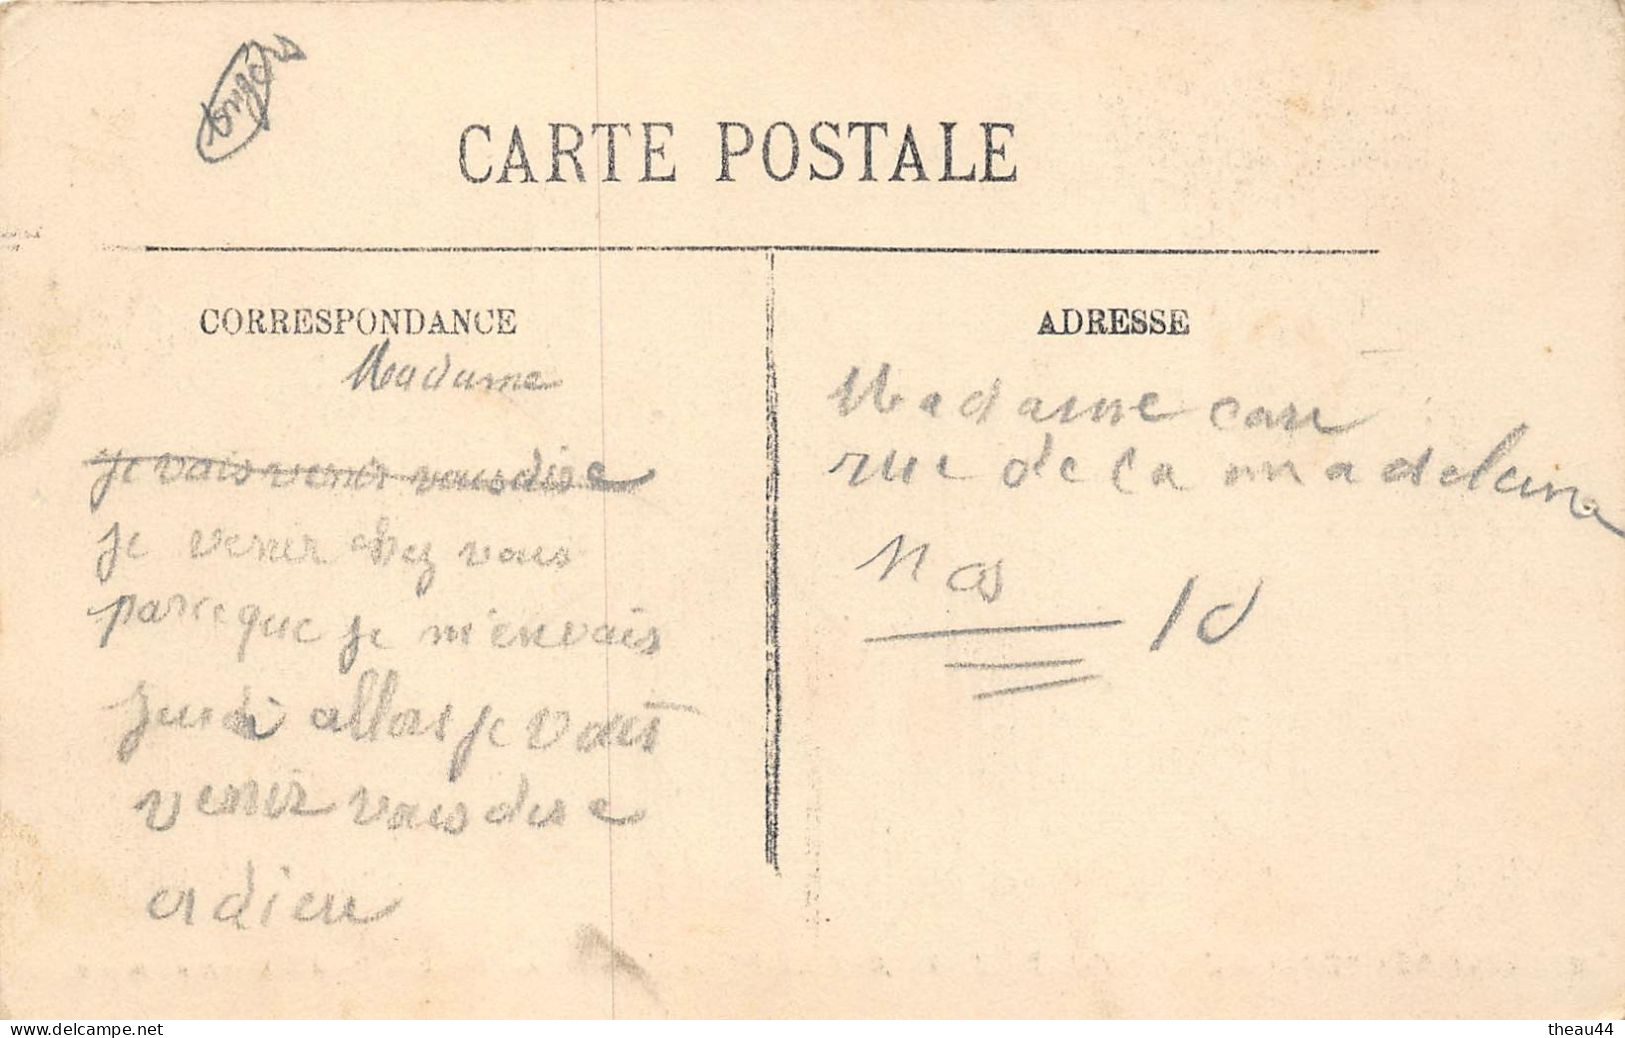 CARTE POSTALE
CORRESPONDANCE
Madame
je vais venir vous dire
je venir chez vous
parceque je m'envais
jeudi allors je vais
venir vous dire
adieu
ADRESSE
Madame
rue de la madeleine
Nos 10
delcampe.net
theau44